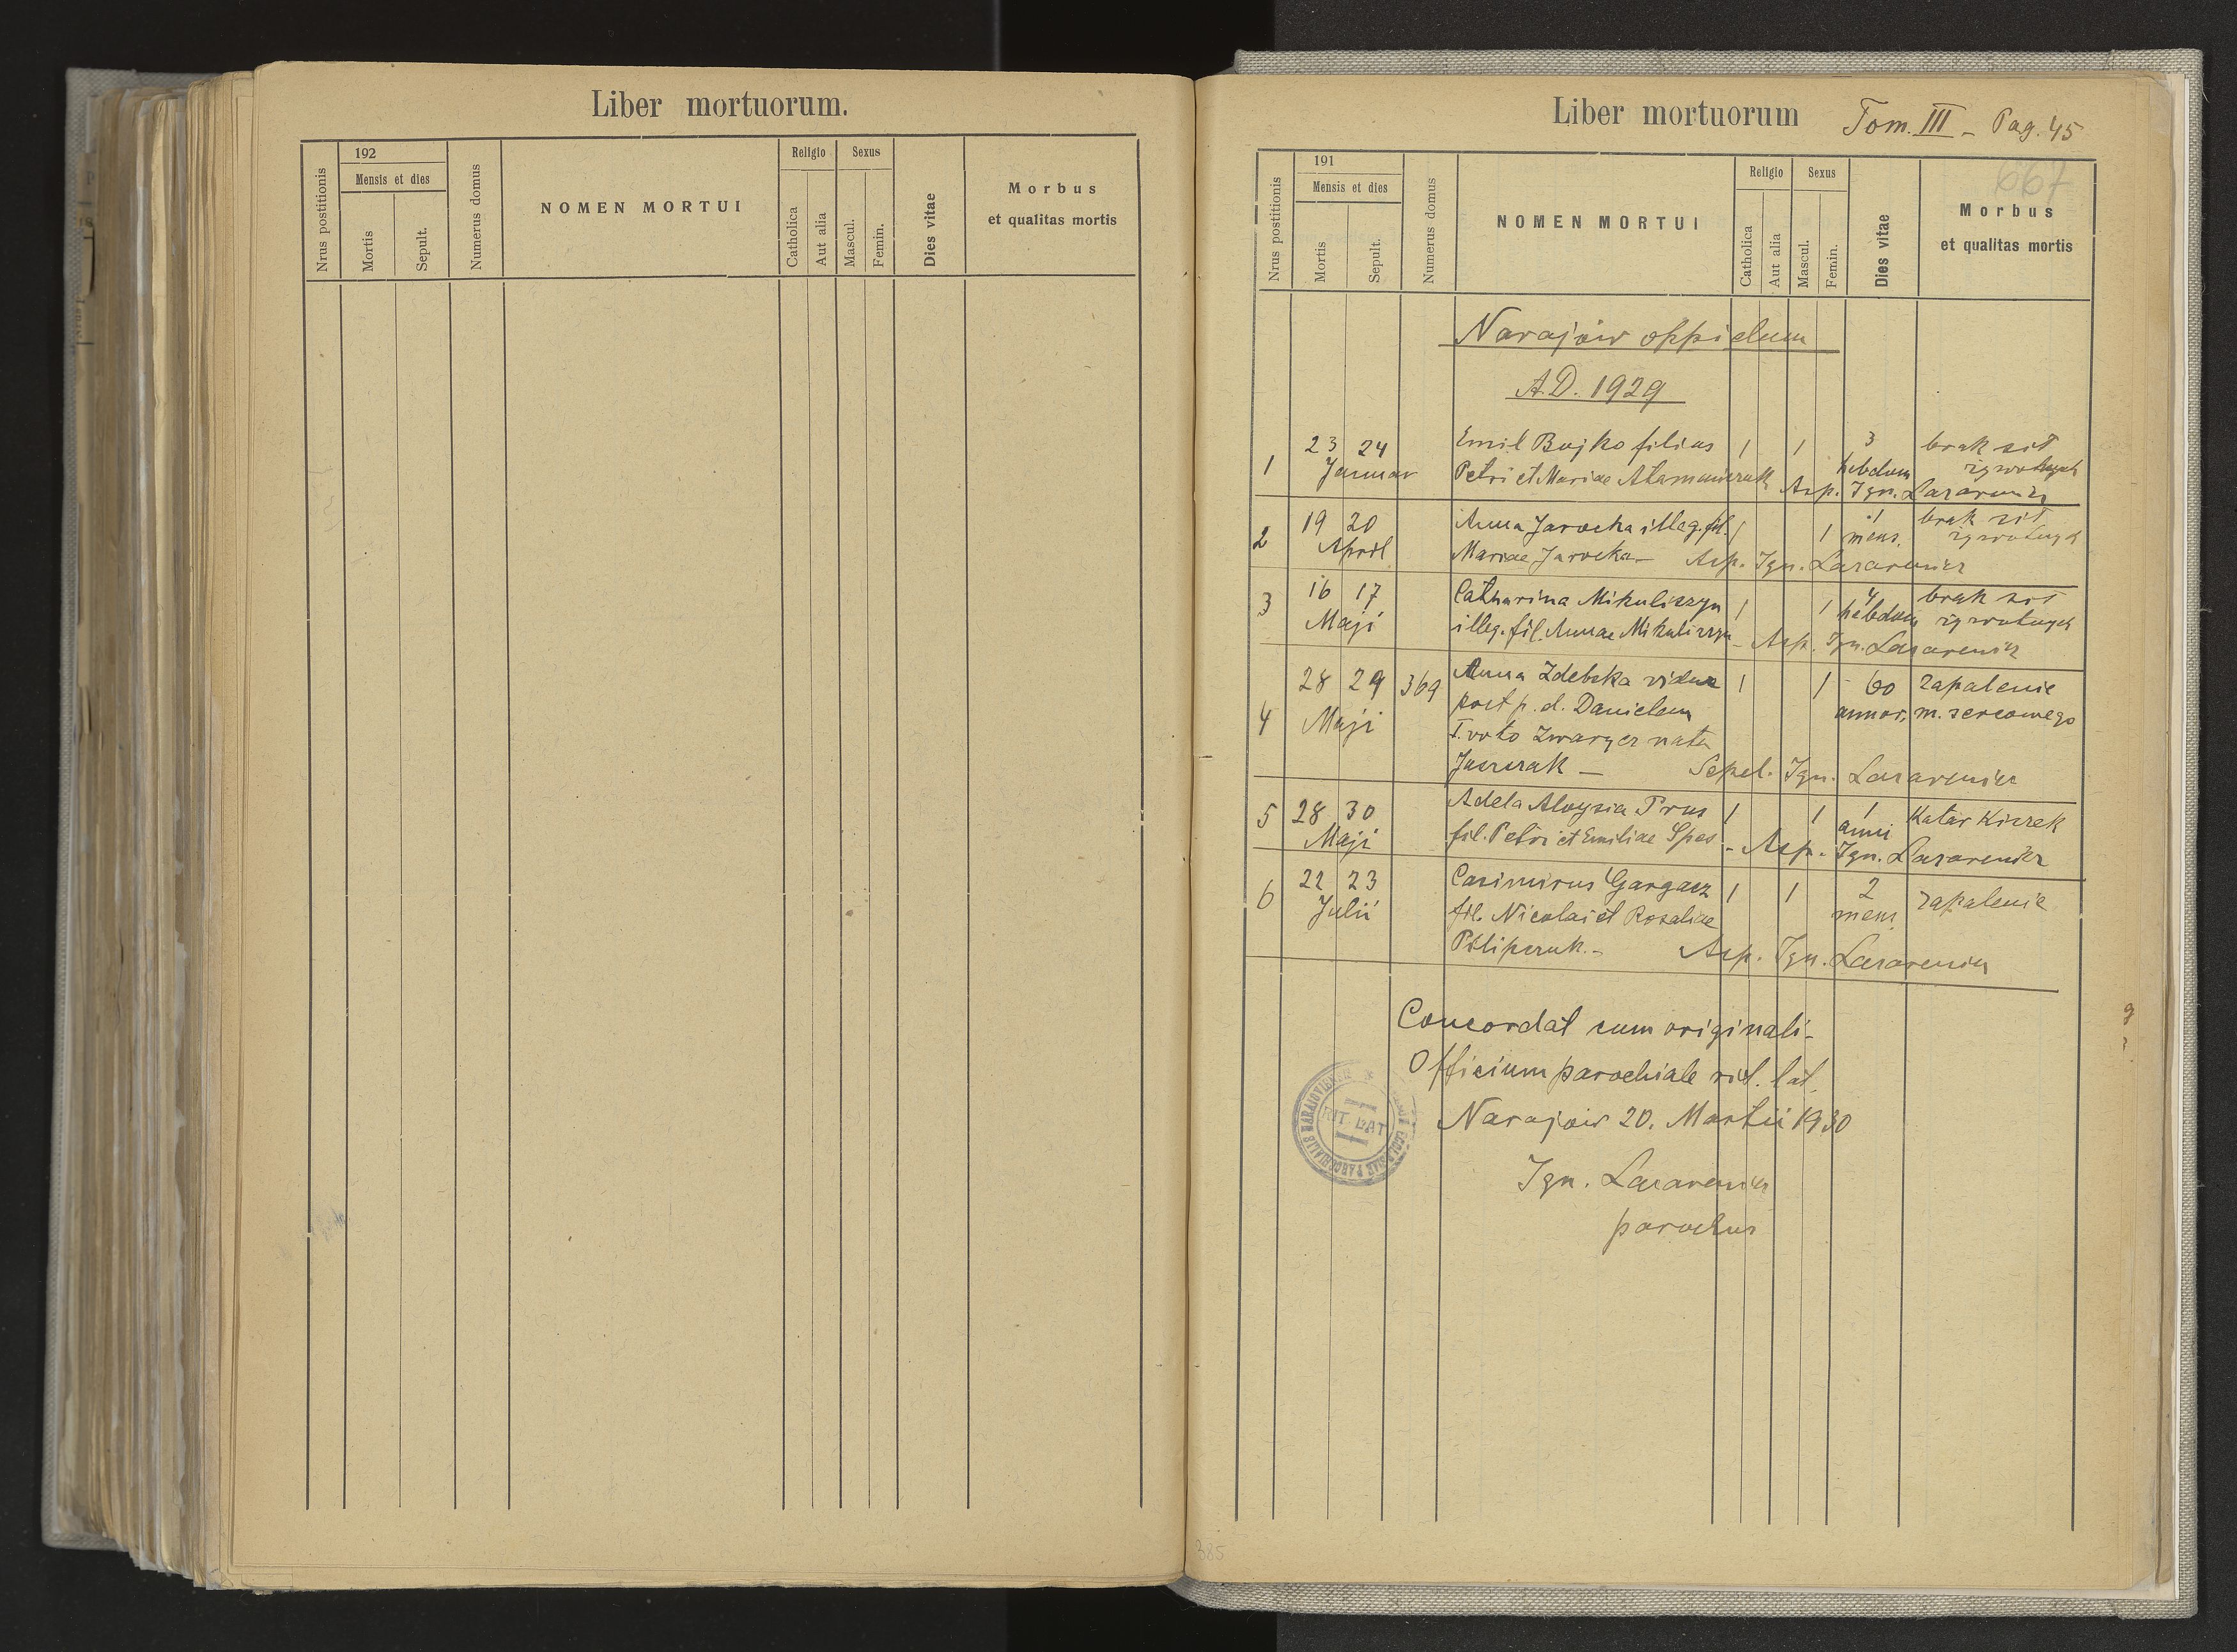 Liber mortuorum.
192
Mensis et dies
Nrus postitionis
Mortis
Sepult.
Numerus domus
NOMEN MORTUI
Religio
Catholica
Aut alia
Sexus
Mascul.
Femin.
Dies vitae
Morbus
et qualitas mortis
Liber mortuorum Tom. III - Pag. 45
667
191
Mensis et dies
Nrus postitionis
Mortis
Sepult.
Numerus domus
NOMEN MORTUI
Religio
Catholica
Aut alia
Sexus
Mascul.
Femin.
Dies vitae
Morbus
et qualitas mortis
Narajów oppidum
A.D. 1929
23 24 Emil Bojko filius 1 1 3 brak sił
1 Januar Petri et Mariae hebdom żywotnych
Asp. Ign. Lazarewicz
19 20 Anna Jarocka illeg. fil. 1 1 1 brak sił
2 April Mariae Jarocka - mens. żywotnych
Asp. Ign. Lazarewicz
16 17 Catharina Mikuliszyn 1 1 4 brak sił
3 Maji illeg. fil. Annae Mikuliszyn - hebdom żywotnych
Asp. Ign. Lazarewicz
28 29 369 Anna Zdebska vidua 1 1 60 zapalenie
4 Maji post p. d. Danielem annor. m. sercowego
I. voto Zwarycz nata
Juszczak - Sepel. Ign. Lazarewicz
5 28 30 Adela Aloysia Prus 1 1 1 Katar Kiszek
Maji fil. Petri et Emiliae Spas - anni
Asp. Ign. Lazarewicz
6 22 23 Casimirus Gargasz 1 1 2 zapalenie
Julii fil. Nicolai et Rosaliae mens.
Pilipczuk. - Asp. Ign. Lazarewicz
Concordat cum originali -
Officium parochiale rit. lat.
Narajów 20. Martii 1930
Ign. Lazarewicz
parochus
RIT. LAT
385